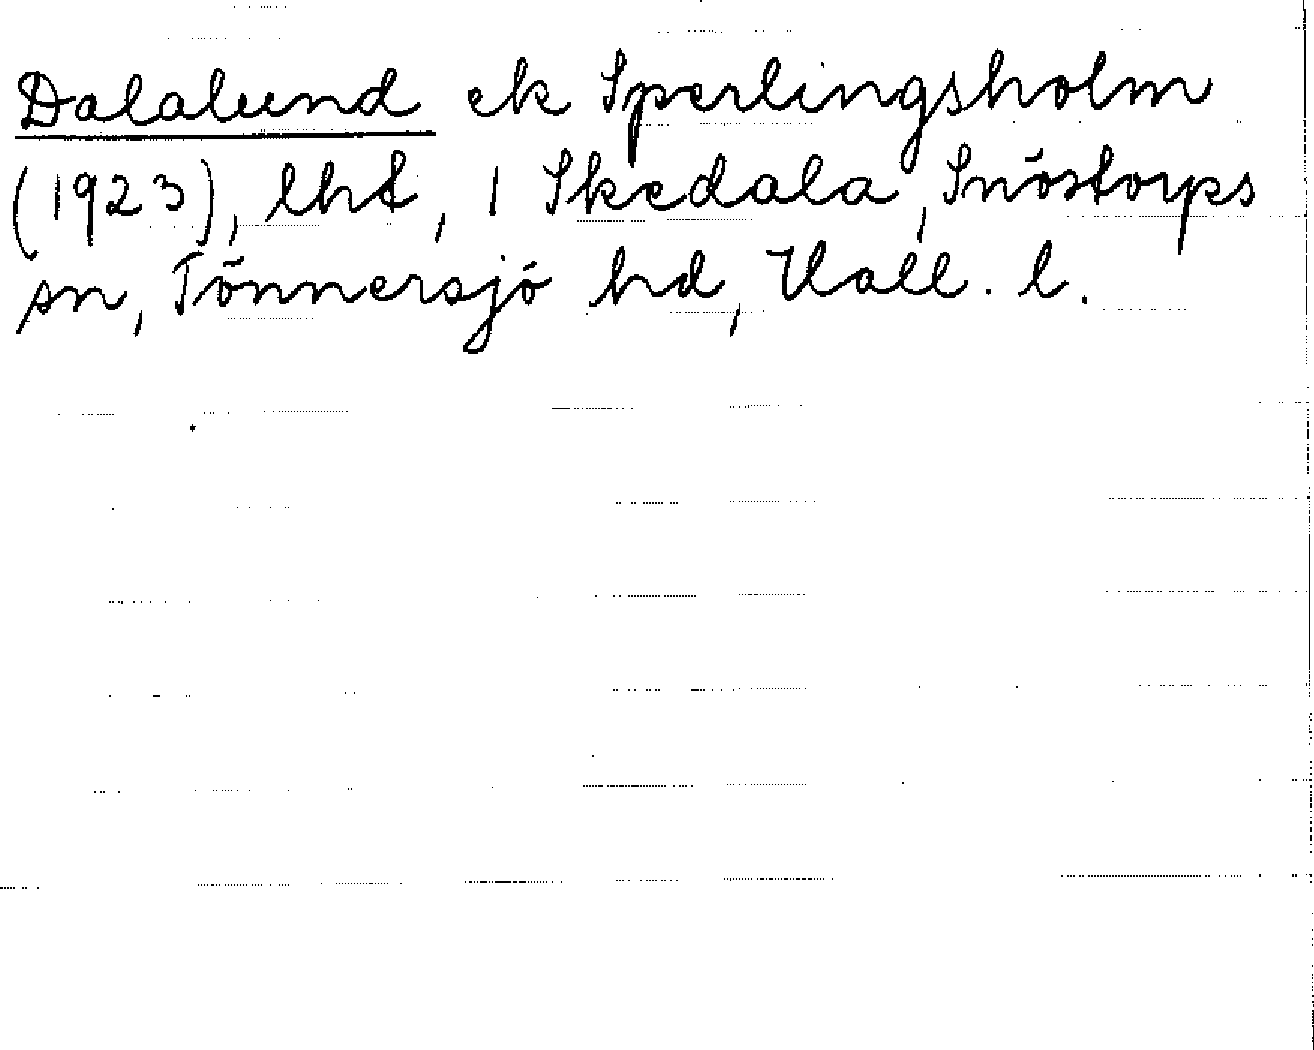 Dalalund ek Sperlingsholm
(1923), lht, 1 Skedala, Snöstorps
sn, Tönnersjö hd, Hall. l.